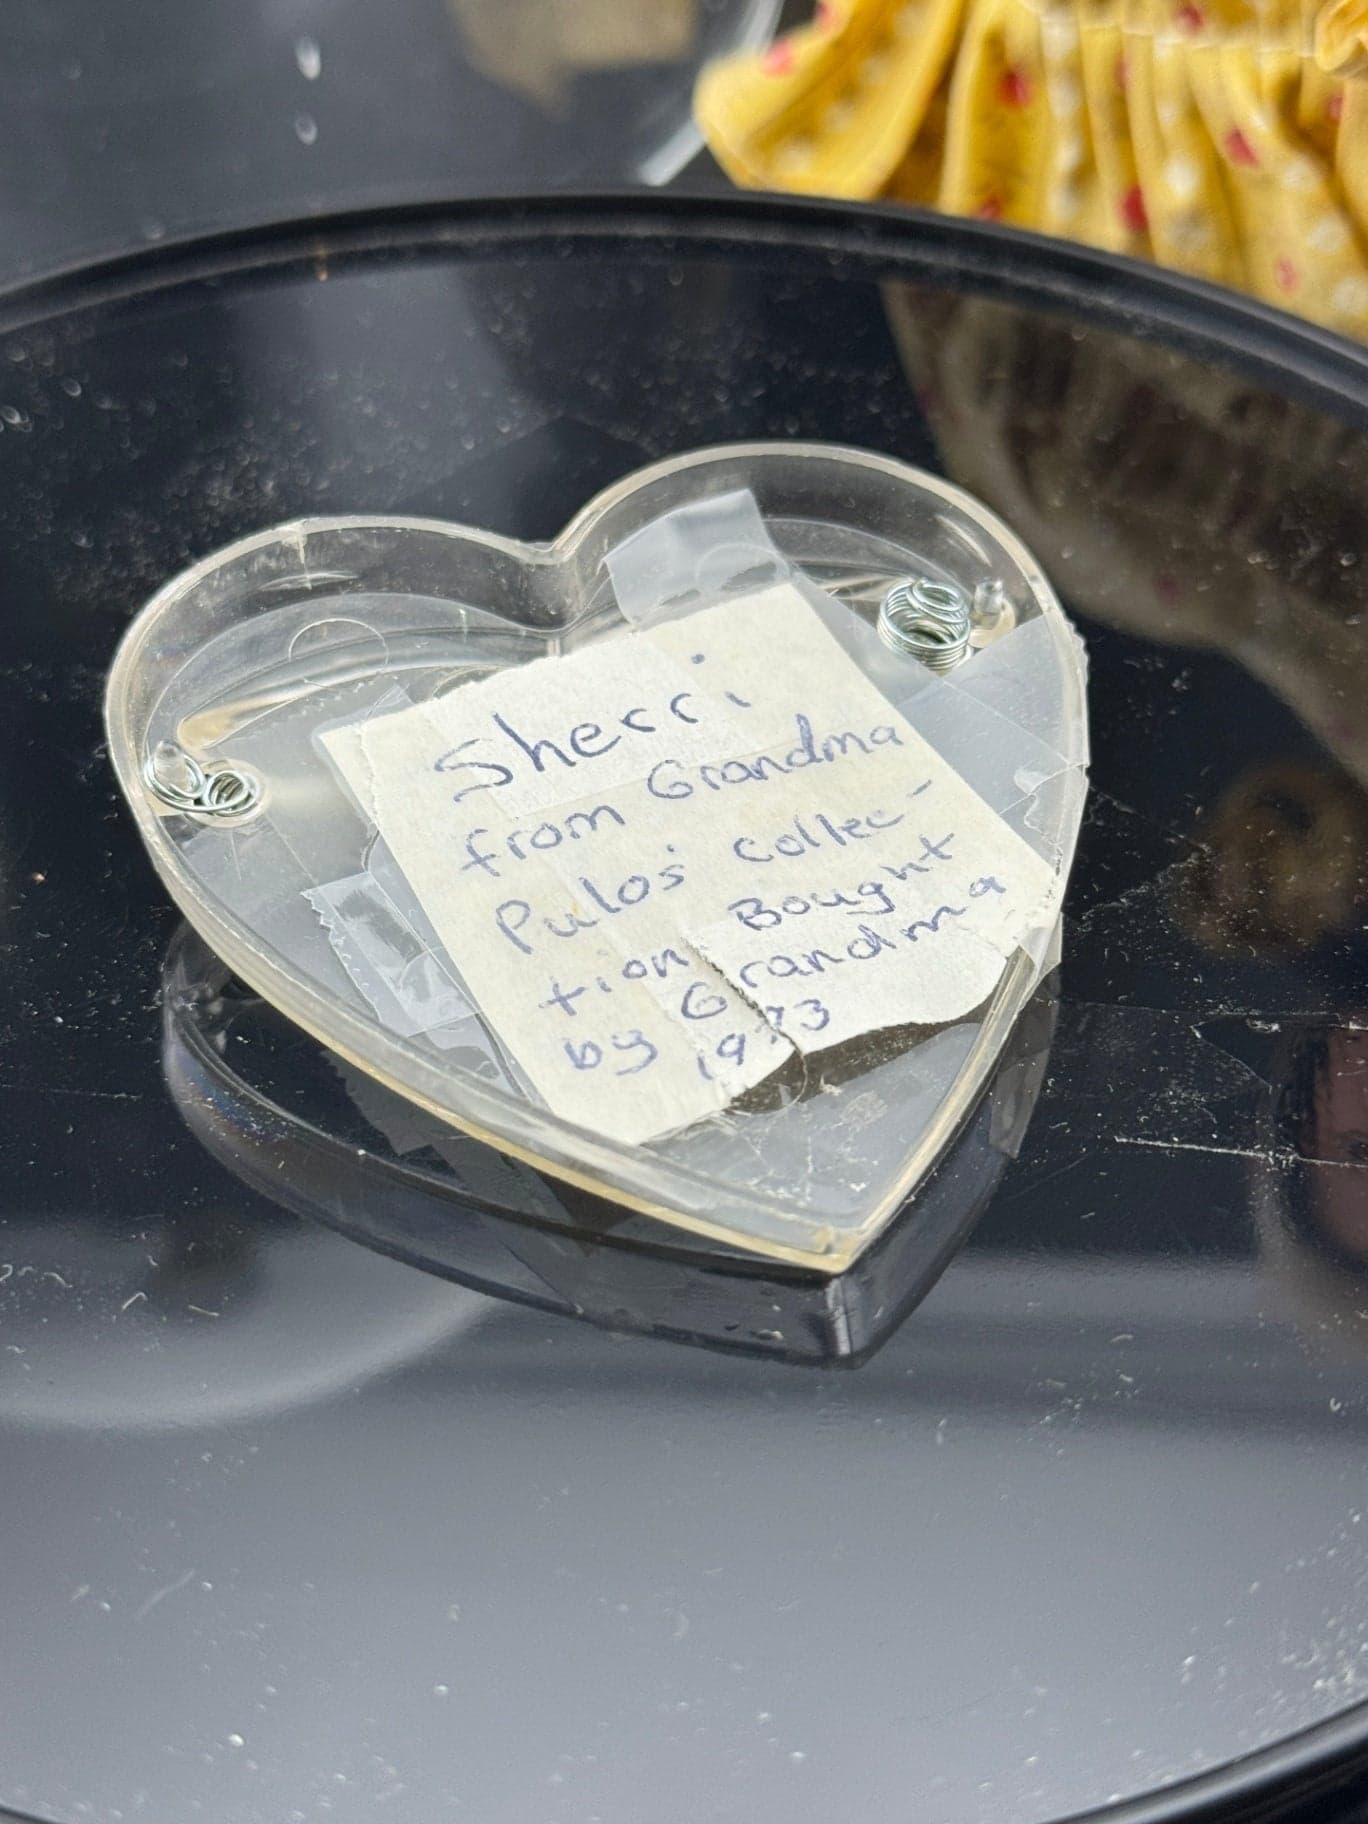 Sherri
from Grandma
Pulos' collec-
tion Bought
by Grandma
1973